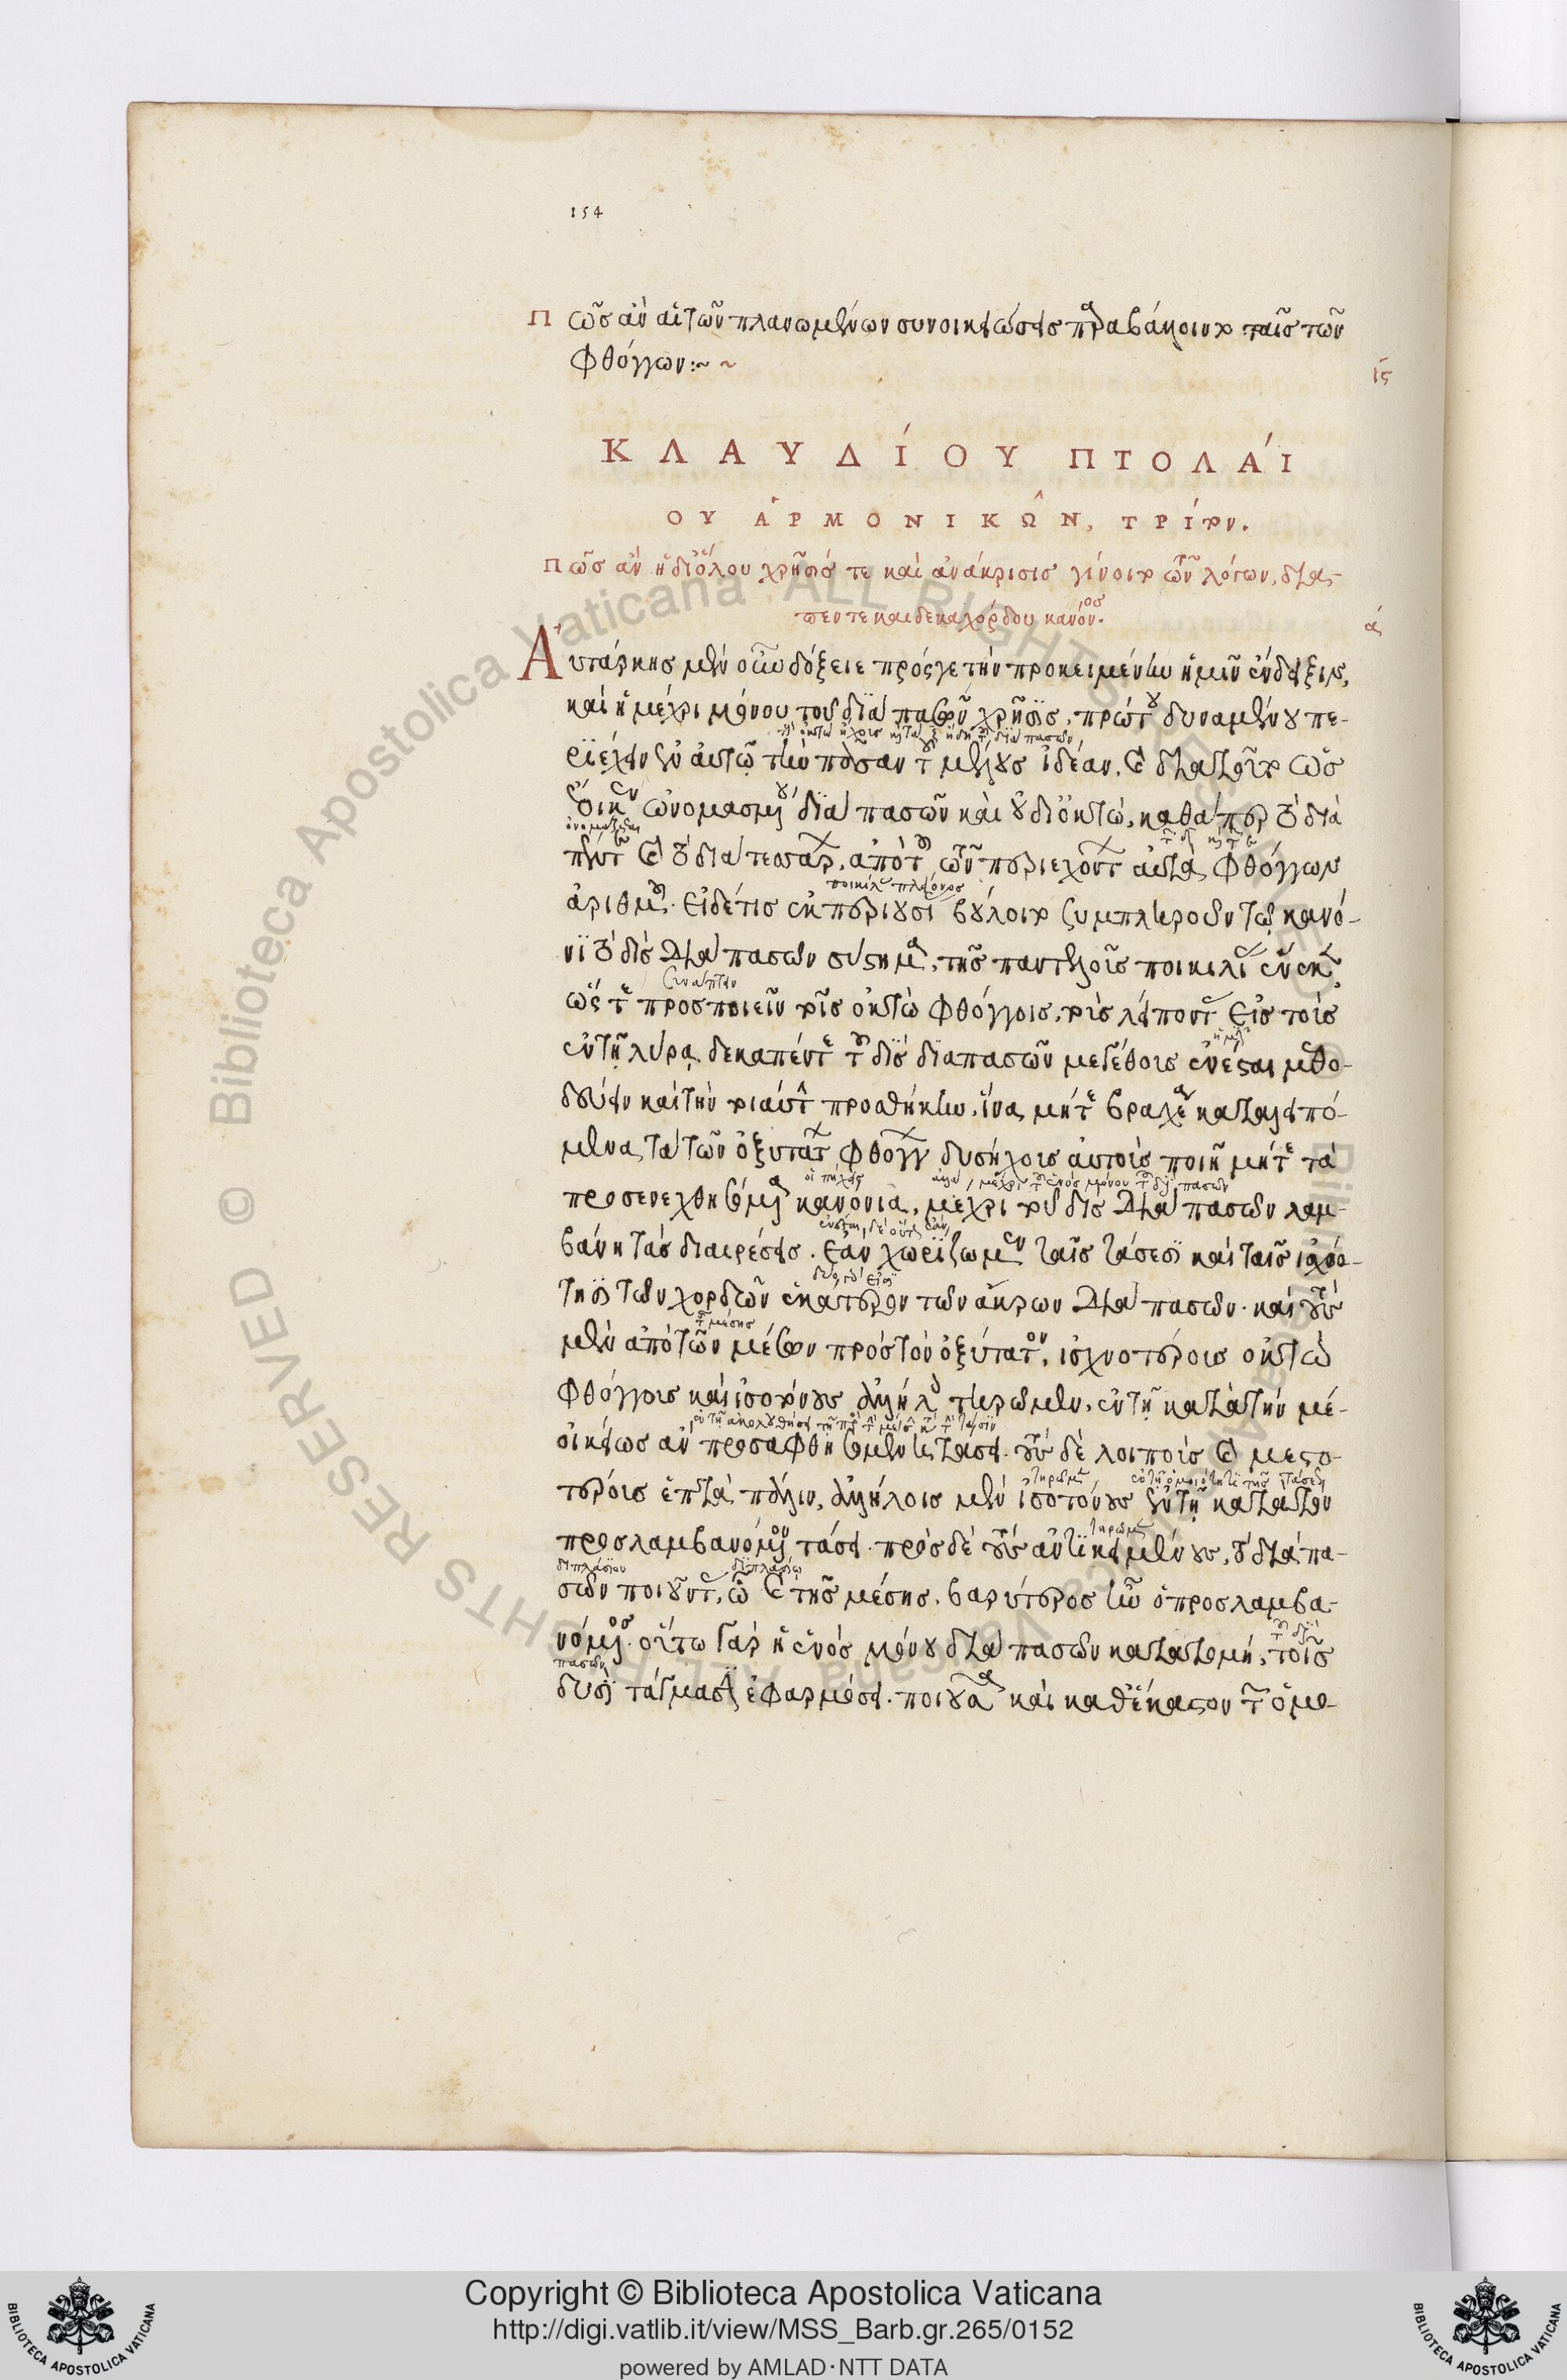 154
Πῶς ἂν αἱ τῶν πλανωμένων συνοικειώσεις παραβάλλοιντο ταῖς τῶν
φθόγγων:~ ~
ις
ΚΛΑΥΔΊΟΥ ΠΤΟΛΑΊ
ΟΥ ἉΡΜΟΝΙΚΩ͂Ν, ΤΡΊτον.
Πῶς ἂν ἡ διόλου χρῆσίς τε καὶ ἀνάκρισις γίνοιτο τῶν λόγων, διὰ
πεντεκαιδεκαχόρδου κανόνος.
ά
Αὐτάρκης μὲν οὖν δόξειε πρός γε τὴν προκειμένην ἡμῖν ἔνδειξιν,
καὶ ἡ μέχρι μόνου τοῦ διὰ πασῶν χρῆσις, πρώτου δυναμένου πε-
ριέχειν ἐν αὐτῷ τὴν πᾶσαν τοῦ μέλους ἰδέαν, καὶ διὰ τοῦτο ὡς
ἔοικεν ὠνομασμένου διὰ πασῶν καὶ οὐ δι' ὀκτώ, καθάπερ τὸ διὰ
πέντε καὶ τὸ διὰ τεσσάρων, ἀπὸ τοῦ τῶν περιεχόντων αὐτὰ φθόγγων
ἀριθμοῦ. εἰ δέ τις ἐκ περιουσίας βούλοιτο συμπληροῦν τῷ κανό-
νι τὸ δὶς διὰ πασῶν σύστημα, τῆς παντελοῦς ποικιλίας ἕνεκεν,
ὥστε προσποιεῖν τοῖς ὀκτὼ φθόγγοις, τοὺς λείποντας εἰς τοὺς
ἐν τῇ λύρᾳ δεκαπέντε τοῦ δὶς διὰ πασῶν μεγέθους ἐνέσται μεθο-
δεύειν καὶ τὴν τοιαύτην προσθήκην, ἵνα μήτε βραχέα καταλειπό-
μενα τὰ τῶν ὀξυτάτων φθόγγων δυσήχους αὐτοὺς ποιῇ μήτε τὰ
προσενεχθησόμενα κανόνια, μέχρι τοῦ δὶς διὰ πασῶν λαμ-
βάνῃ τὰς διαιρέσεις. ἐὰν χωρίζωμεν ταῖς τάσεσι καὶ ταῖς ἰσχνό-
τησι τῶν χορδῶν ἑκάτερον τῶν ἄκρων διὰ πασῶν. καὶ τοὺς
μὲν ἀπὸ τῶν μέσων πρὸς τὸν ὀξύτατον, ἰσχνοτέρους ὀκτὼ
φθόγγους καὶ ἰσοτόνους ἀλλήλοις τηρῶμεν, ἐν τῇ κατὰ τὴν μέ-
οἰκείως ἂν προσαφθησομένης τάσει. τοὺς δὲ λοιποὺς καὶ μεστο-
τέρους ἑπτὰ πάλιν, ἀλλήλοις μὲν ἰσοτόνους ἐν τῇ κατὰ τὸν
προσλαμβανόμενον τάσει. πρὸς δὲ τοὺς ἀντικειμένους, τὸ διὰ πα-
σῶν ποιοῦντας, ᾧ καὶ τῆς μέσης, βαρύτερος ἦν ὁ προσλαμβα-
νόμενος. οὕτω γὰρ ἡ ἑνὸς μόνου διὰ πασῶν κατατομή, τοῖς
δυσὶ τάγμασιν ἐφαρμόσει. ποιοῦσα καὶ καθ' ἕκαστον τῶν ὁμο-
Copyright © Biblioteca Apostolica Vaticana
http://digi.vatlib.it/view/MSS_Barb.gr.265/0152
powered by AMLAD·NTT DATA